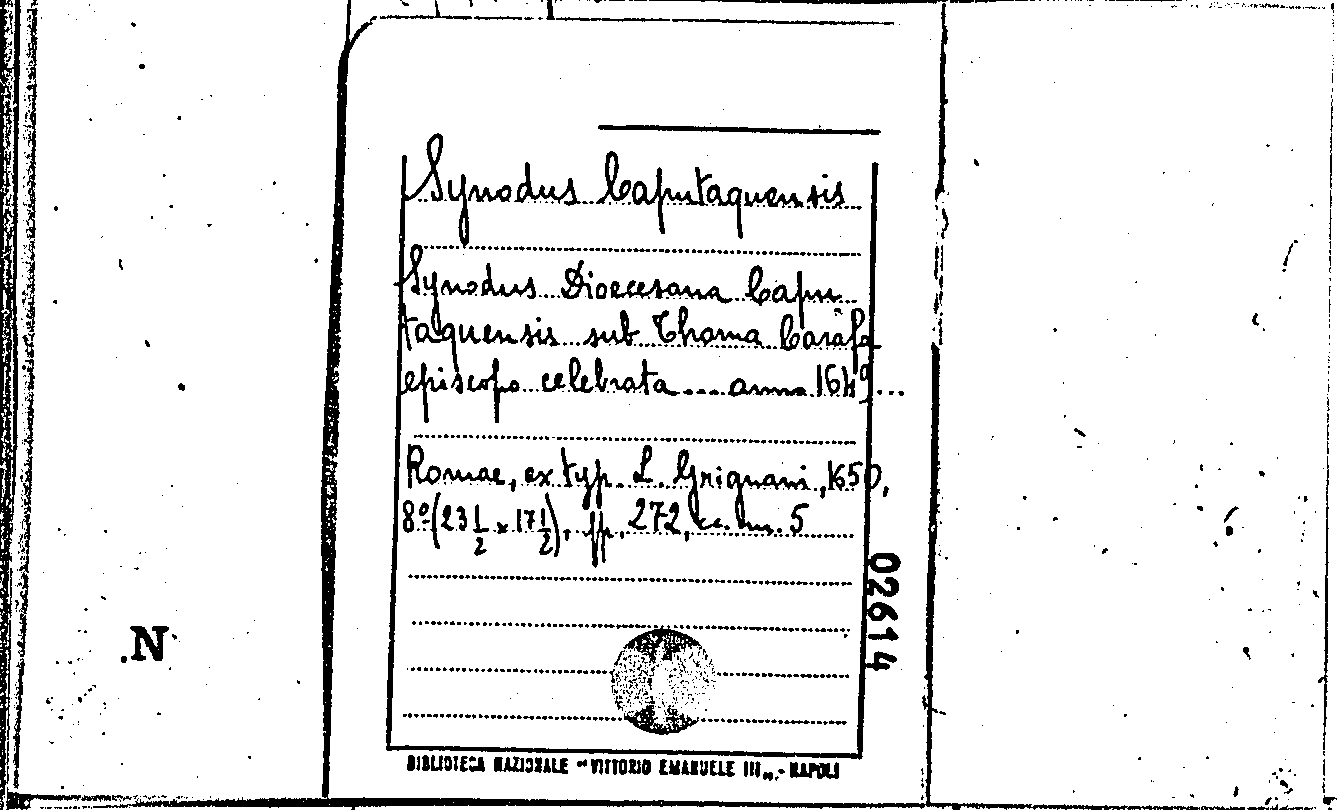 Synodus Caputaquensis
Synodus Dioecesana Capu
taquensis sub Thoma Carafa
episcopo celebrata ... anno 1649 ...
Romae, ex typ. L. Grignani, 1650,
8º (23 1/2 x 17 1/2), pp. 272, cc. nn. 5
02614
N
BIBLIOTECA NAZIONALE "VITTORIO EMANUELE III„ - NAPOLI